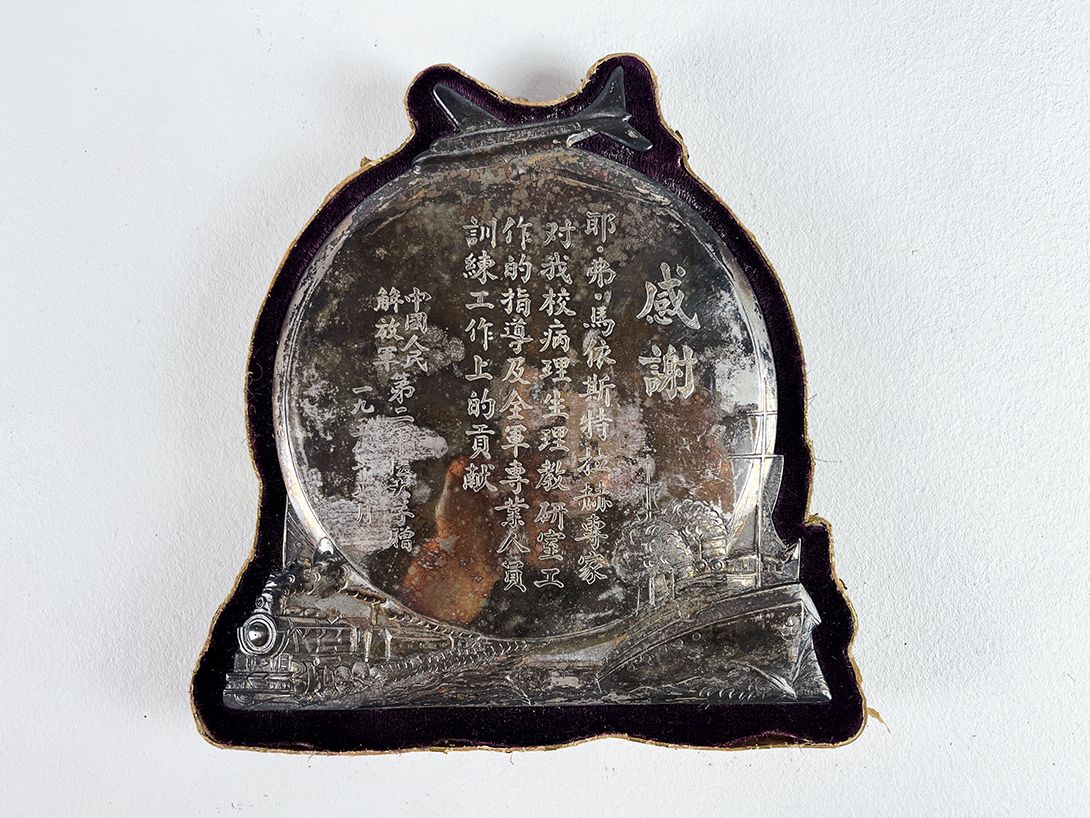 感謝
耶·弗·馬依斯特拉赫專家
对我校病理生理教研室工
作的指導及全軍專業人員
訓練工作上的貢献
中國人民
解放軍第二軍医大学贈
一九五
月